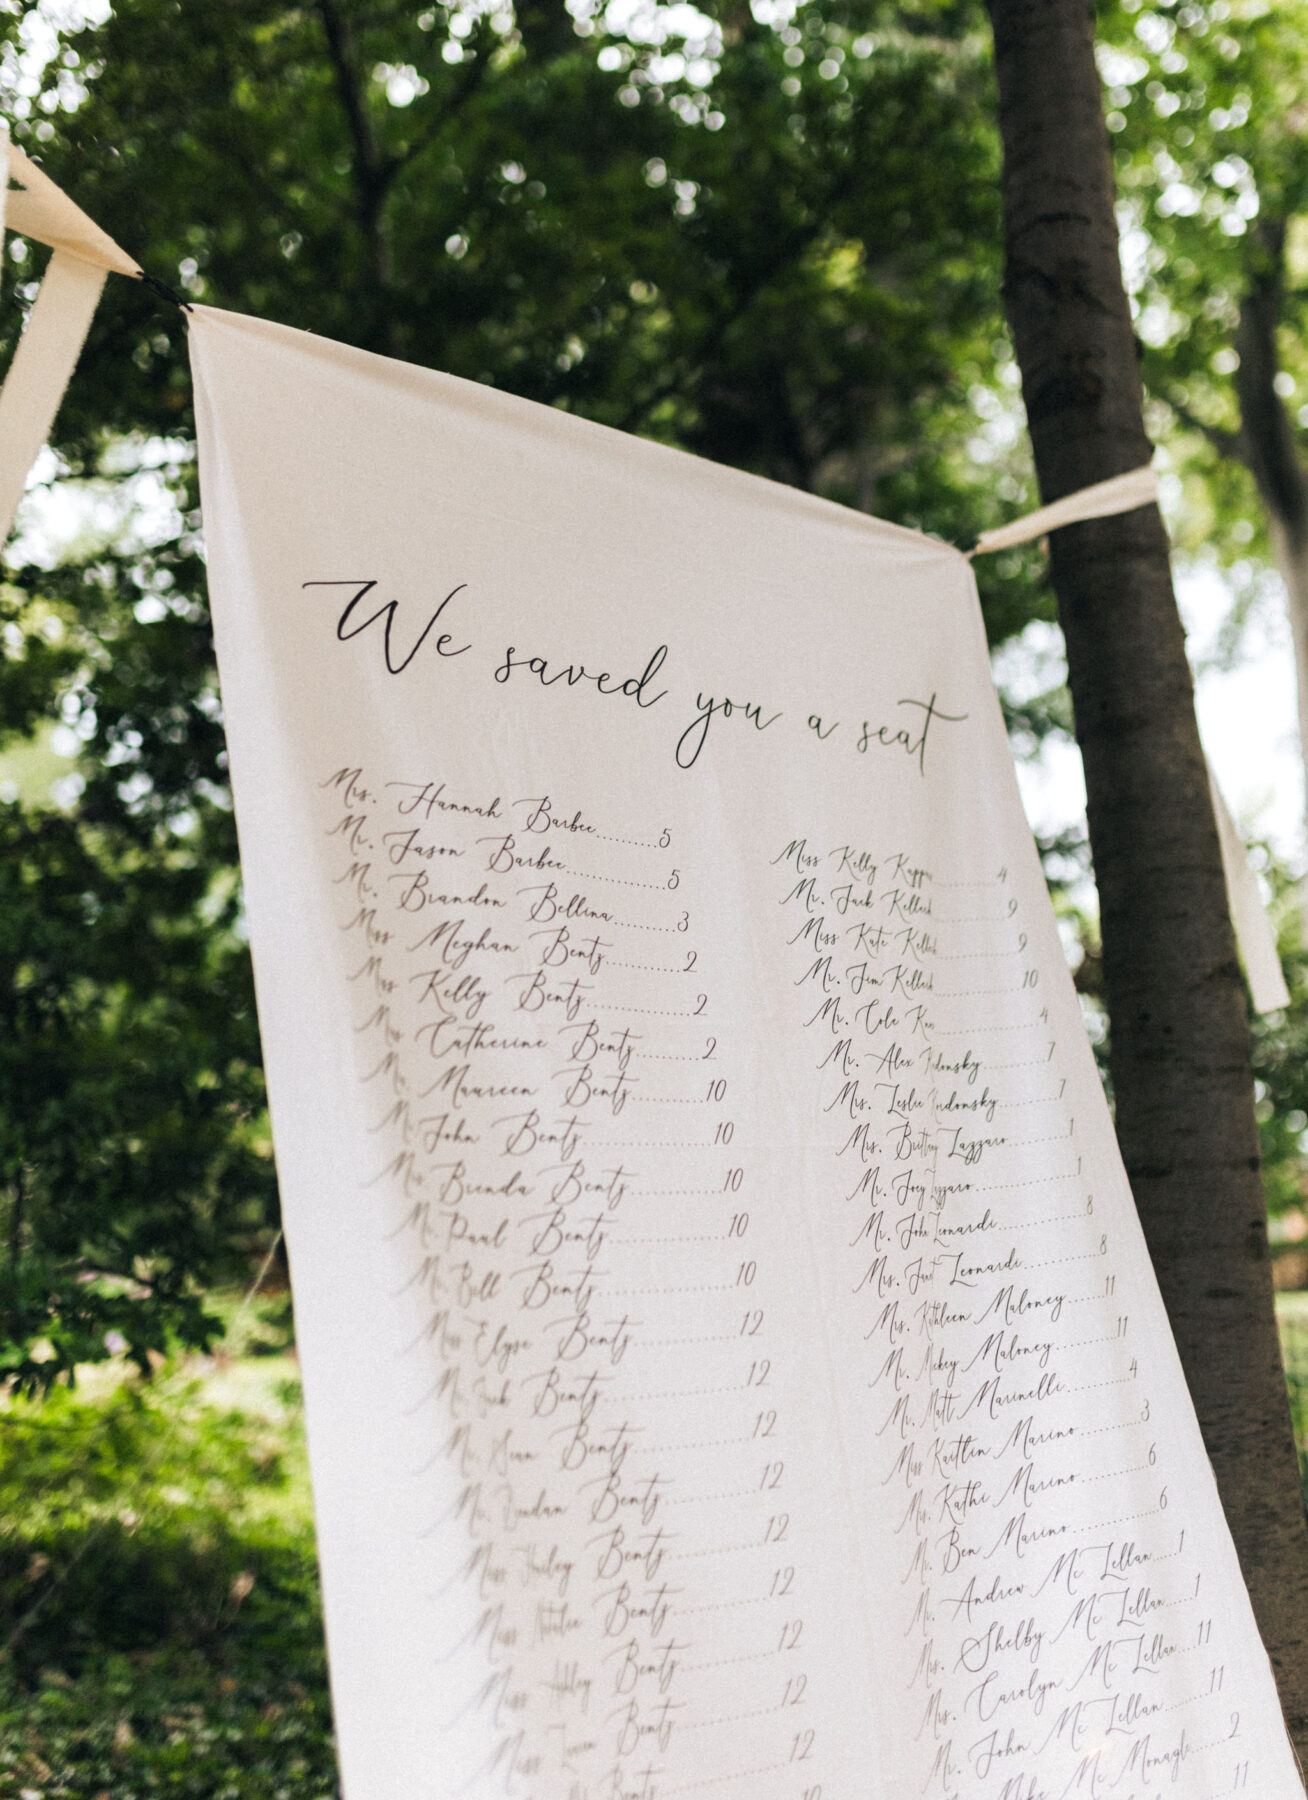 We saved you a seat
Mrs. Hannah Barbee.........5
Mr. Jason Barbee..............5
Mr. Brandon Bellina.........3
Miss Meghan Bentz...........2
Miss Kelly Bentz...............2
Catherine Bentz.........2
Maureen Bentz...........10
Mr. John Bentz................10
Mrs. Brenda Bentz.............10
Mr. Paul Bentz................10
Mr. Bill Bentz..................10
Miss Elyse Bentz..............12
Mr. Jack Bentz.................12
Mr. Sean Bentz................12
Mr. Bentz..............12
Miss Hailey Bentz.............12
Miss Bentz.............12
Miss Bentz..............12
Miss Bentz..............12
Bentz..............12
Miss Kelly 4
Mr. Jack 9
Miss Kate 9
Mr. Jim 10
Mr. Cole 4
Mr. Alex 7
Mrs. Leslie 7
Mrs. Brittney Lazzaro............1
Mr. Joey Lazzaro...................1
Mr. John Leonardi................8
Mrs. Leonardi.............8
Mrs. Kathleen Maloney.......11
Mr. Mickey Maloney............11
Mr. Matt Marinelli............4
Miss Kaitlin Marino............3
Mrs. Kathi Marino.............6
Mr. Ben Marino.................6
Mr. Andrew Mc Lellan.....1
Mrs. Shelby Mc Lellan......1
Mrs. Carolyn Mc Lellan....11
Mr. John Mc Lellan.........11
Mike Mc Monagle.......2
11